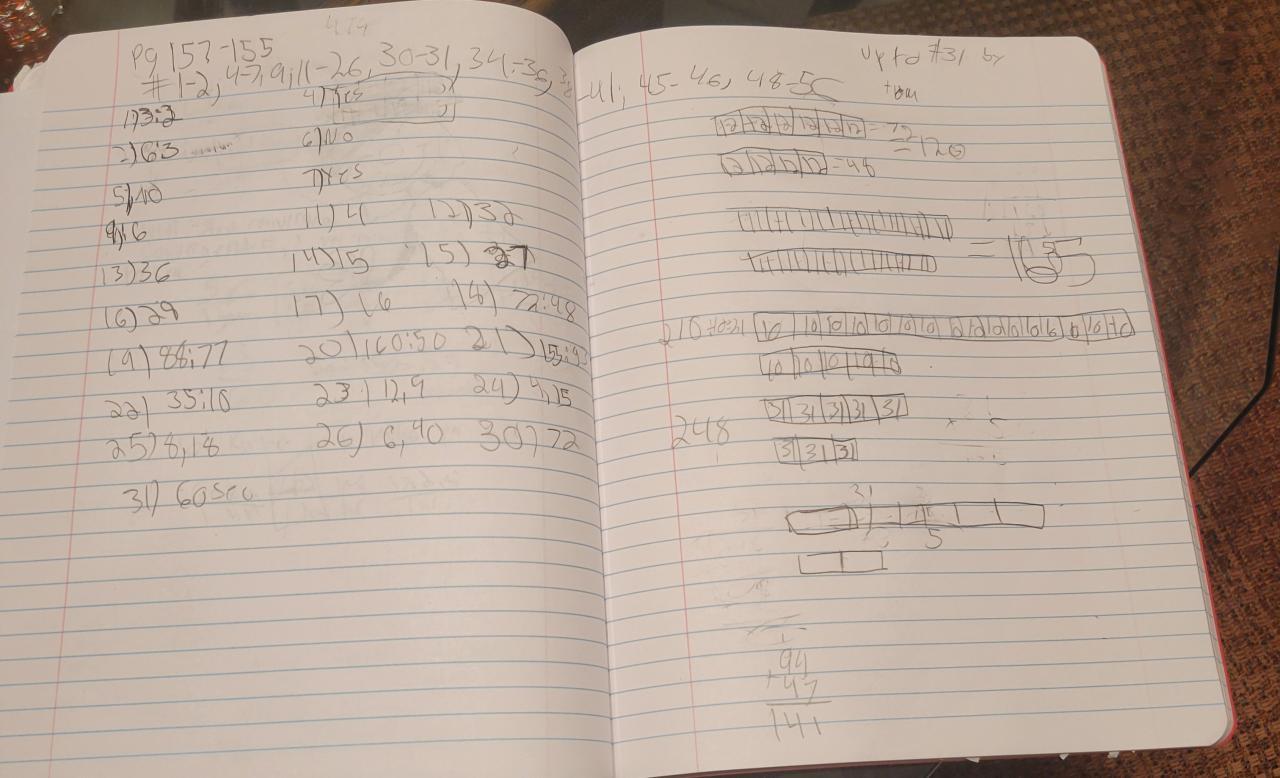 pg 153-155
# 1-2, 4-7, 9, 11-26, 30-31, 34-36, 38-41, 45-46, 48-50
1) 3:2 4) Yes
2) 6:3 6) NO
5) NO 7) Yes
9) 6 11) 4 12) 32
13) 36 14) 15 15) 27
16) 29 17) 16 18) 72:48
19) 88:77 20) 160:50 21)
22) 35:10 23) 12,9 24) 9,15
25) 8,18 26) 6,40 30) 72
31) 60 sec
up to #31 by
tom
12 12 12 12 12 12 = 72
= 120
12 12 12 12 = 48
= 165
210
10 10 10 10 10 10 10 10 10 10 10 10 10 10 10
10 10 10 10 10
31 31 31 31 31
248
31 31 31
31
5
1
94
+47
141